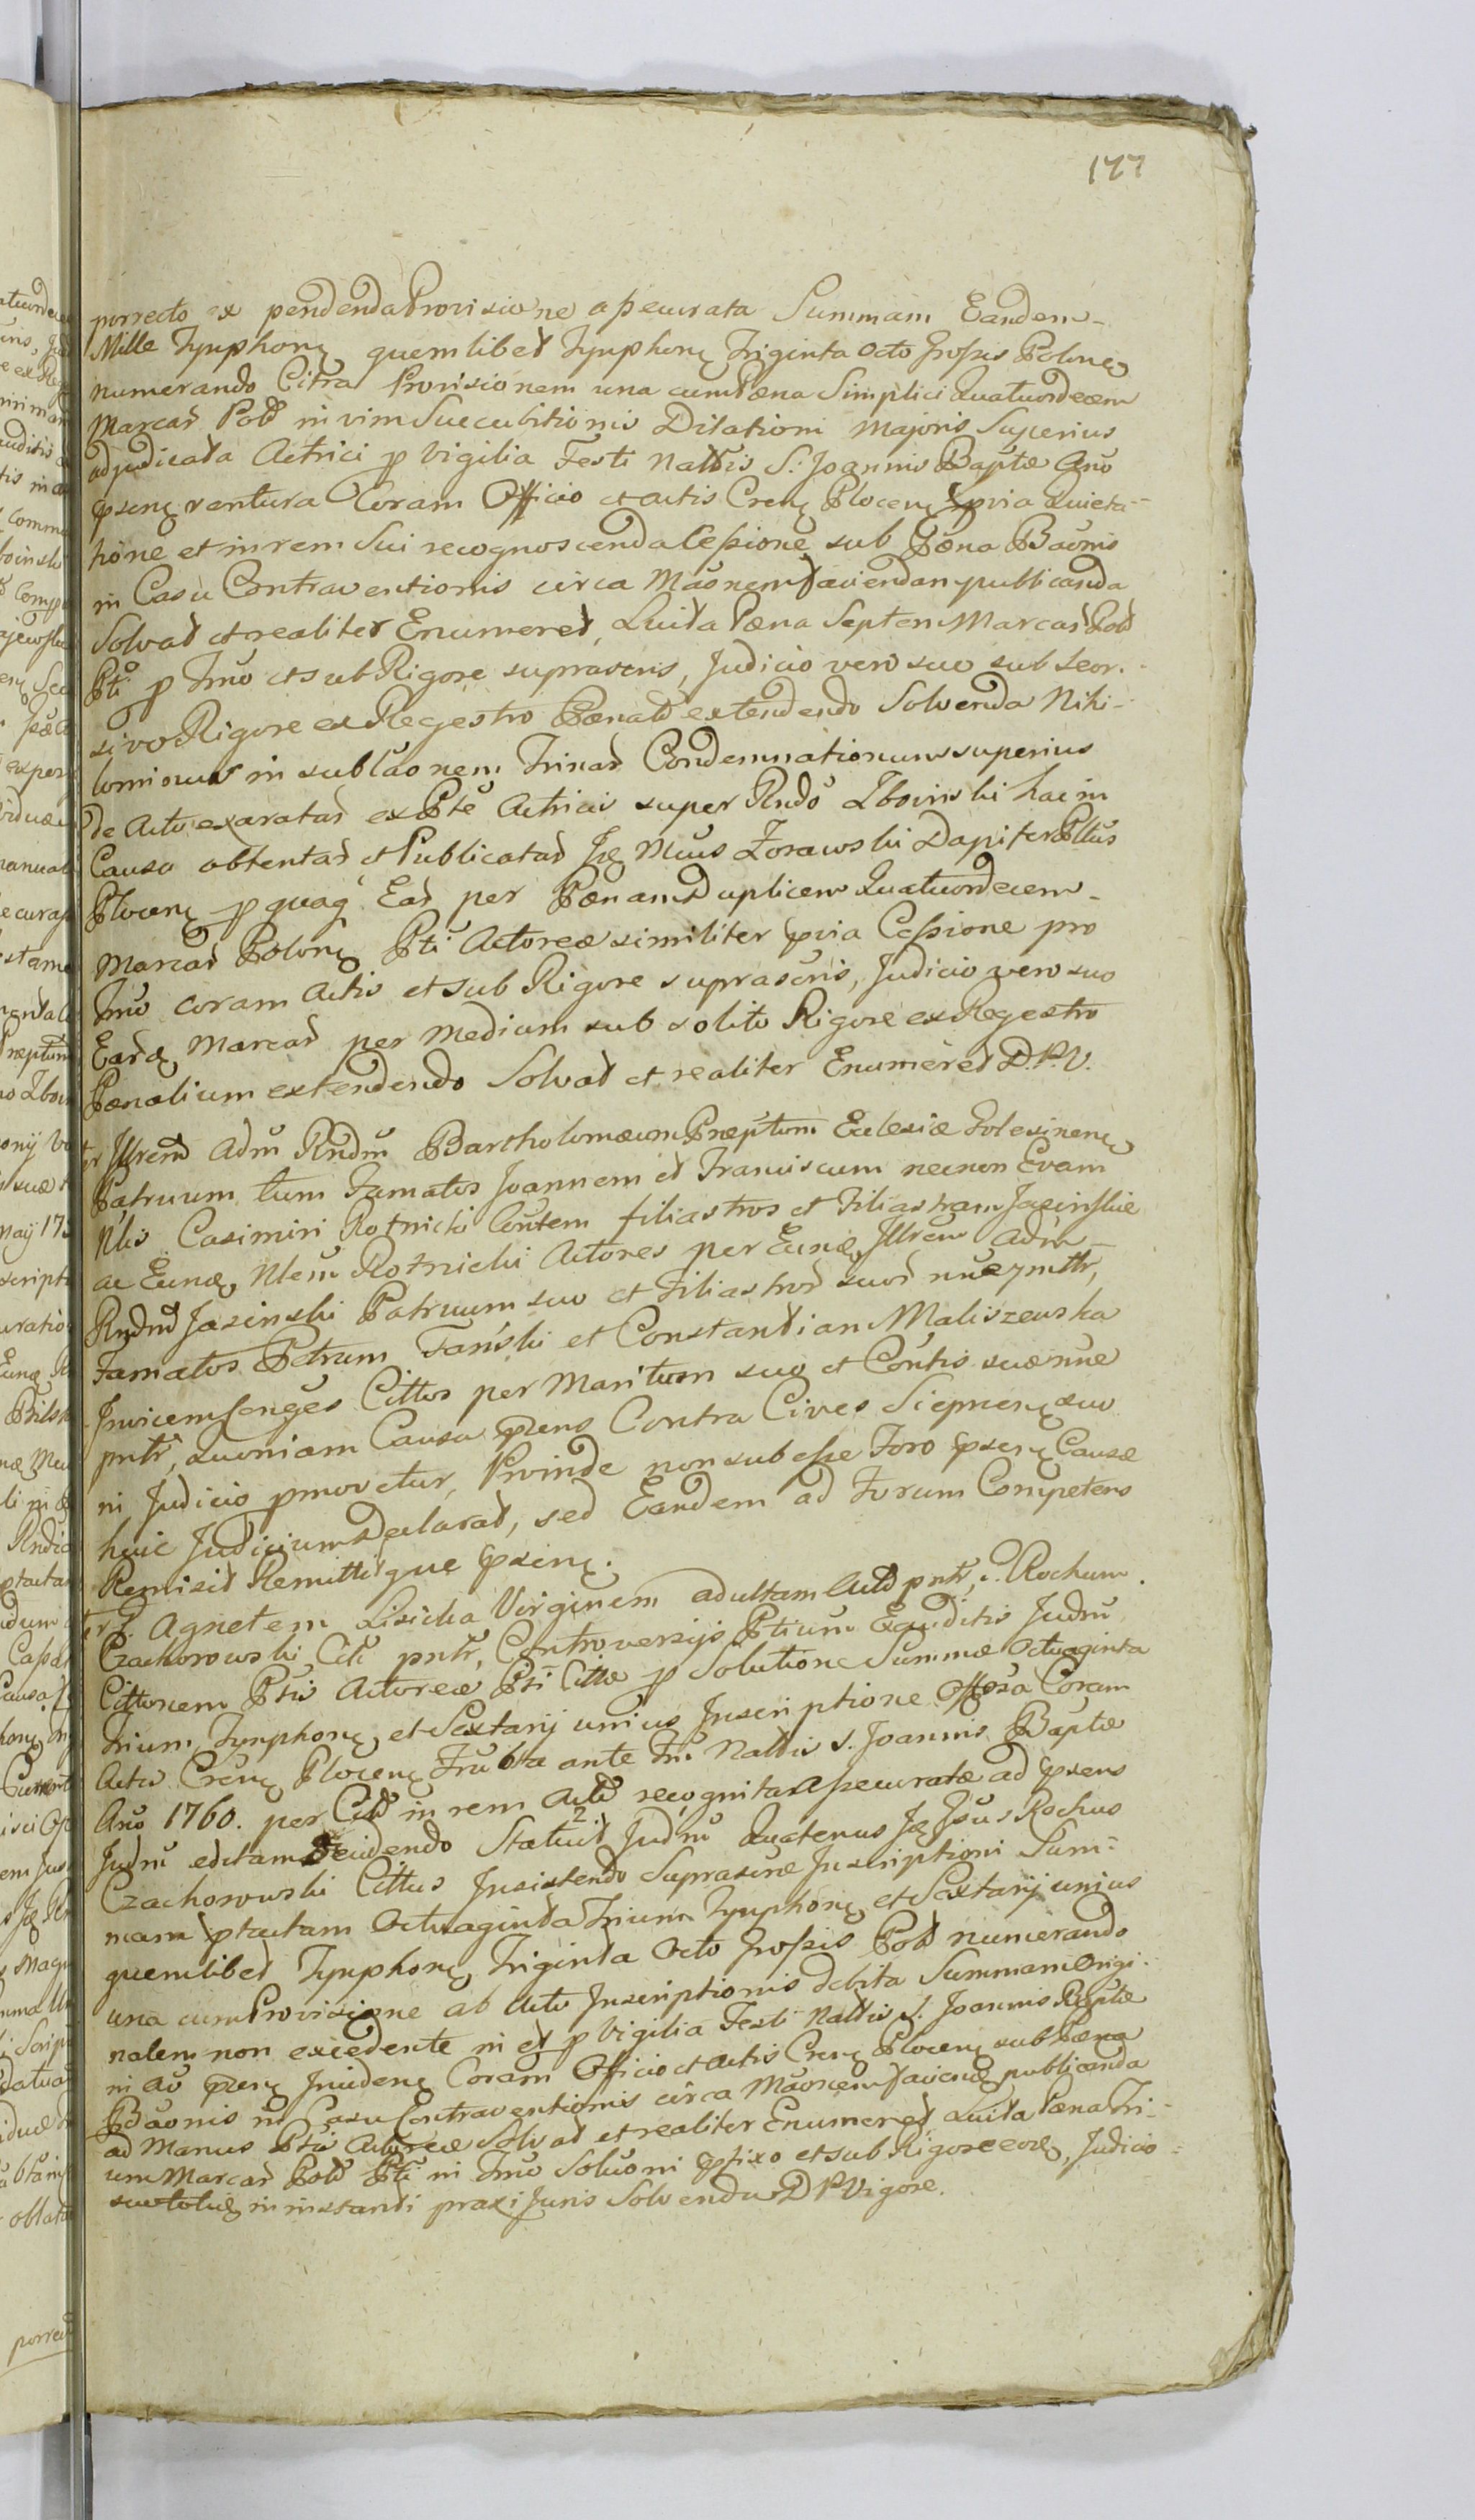 177
porrecto ex pendenda Provisione assecurata Summam Eandem-
Mille Tynphonꝫ quemlibet Tynphonꝫ Triginta Octo Grossis Polonꝫ
numerando Citra Provisionem una cum Pæna Simplici Quatuordecem
Marcas Pol in vim Succubitionis Dilationi Majoris Superius
adjudicata Actrici p Vigilia Festi Natlis S: Joannis Baptæ Ano
pxenꝫ ventura Coram Officio et Actis Crenꝫ Plocenꝫ pvia Quieta-
tione et in rem Sui recognoscenda Cessione sub Pæna Baonis
in Casu Contraventionis circa Maonem faciendam publicanda
Solvat et realiter Enumeret, Luita Pæna Septem Marcas Pol
Pti p Tmo et sub Rigore suprascris, Judicio vero suo sub seor-
sivo Rigore ex Regestro Pænali extendendo Solvenda Nihi-
lominus in sublaonem Trinas Condemnationum superius
de Actu exaratas ex Pte Actricis super Rndo Zboinski hac in
Causa obtentas et Publicatas Jꝫ Mcus Zorawski Dapifer Pltus
Plocenꝫ p quaqꝫ Eas per Pænam Duplicem Quatuordecem-
Marcas Polonꝫ Pti Actoreæ similiter pvia Cessione pro
Tmo coram Actis et sub Rigore suprascris, Judicio vero suo
Easdꝫ Marcas per Medium sub solito Rigore ex Regestro
Pænalium extendendo Solvat et realiter Enumeret D.P.V.
ter Jllrem Adm Rndm Bartholomæum Præptum Eclesiæ Golesinenꝫ
Patruum tum Famatos Joannem et Franciscum necnon Evam
Nlis Casimiri Rotnicki Contem filiastros et Filiastram Jasinskie
ac Eundꝫ Nlem Rotnicki Actores per Eundꝫ Jllrem Adm-
Rndm Jasinski Patruum suo et Filiastros suos nne pnttr,
Famatos Petrum Fański et Constantiam Maliszewska
Jnvicem Conges Cittos per Maritum suo et Contis suæ nne
pnttr, Quoniam Causa pens Contra Cives Siepnenꝫ suo
in Judicio pmovetur, Proinde non subesse Foro pxenꝫ Causæ
huic Judicium Declarat, sed Eandem ad Forum Competens
Remisit Remittitque pxenꝫ.
ter G. Agnetem Lisicka Virginem adultam Act pnttr, G. Rochum
Czachorowski Citt pnttr, Controversijs Ptium Exauditis Judm
Cittionem Ptis Actoreæ Pti Cittæ p Solutione Summæ Octuaginta
trium Tynphonꝫ et Sextarij unius Jnscriptione Offosa Coram
Actis Crenꝫ Plocenꝫ Fruba ante Fm Natlis S. Joannis Baptæ
Ano 1760. per Citt in rem Act recognita Assecuratæ ad pxens
Judm editam Decidendo Statuit Judm Quatenus Jꝫ Gsus Rochus
2
Czachorowski Cittus Jnsistendo Suprascræ Jnscriptioni Sum-
mam ptactam Octuaginta Trium Tynphonꝫ et Sextarij unius
quemlibet Tynphonꝫ Triginta Octo Grossis Pol numerando
una cum Provisione ab Actu Jnscriptionis debita Summam Origi-
nalem non excedente in et p Vigilia Festi Natlis S. Joannis Baptæ
in Ao pxenꝫ Jncidenꝫ Coram Officio et Actis Crenꝫ Plocenꝫ sub Pæna
Baonis in Casu Contraventionis circa Maonem faciendꝫ publicanda
ad Manus Ptis Actoreæ Solvat et realiter Enumeret Luita Pæna Tri-
um Marcas Pol Pti in Tmo Soluoni pfixo et sub Rigore eodꝫ, Judicio
suo totidꝫ in instanti praxi Juris Solvenda D P Vigore.